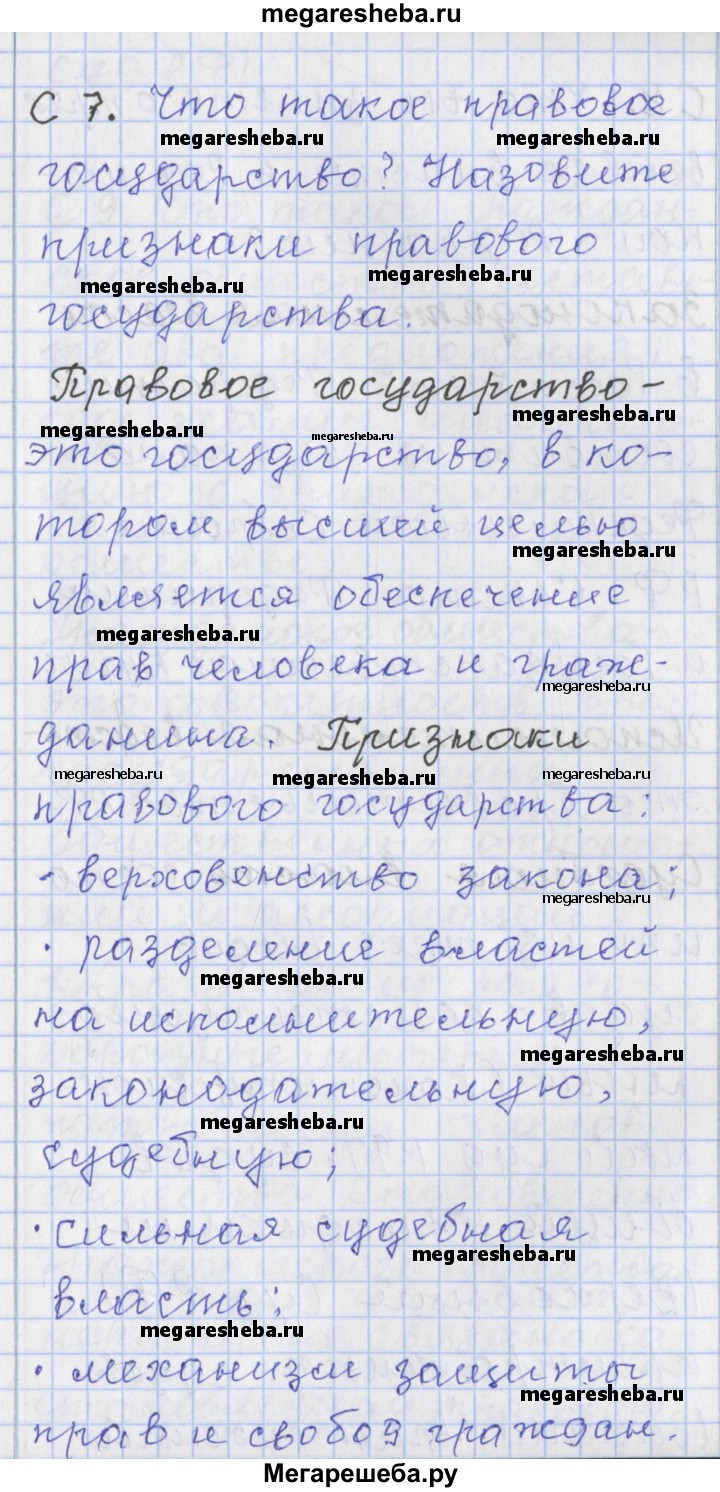 megaresheba.ru
С 7. Что такое правовое
megaresheba.ru megaresheba.ru
государство? Назовите
признаки правового
megaresheba.ru megaresheba.ru
государства.
Правовое государство-
megaresheba.ru megaresheba.ru megaresheba.ru
это государство, в ко-
тором высшей целью
megaresheba.ru
является обеспечение
megaresheba.ru
прав человека и граж-
megaresheba.ru
данина. Признаки
megaresheba.ru megaresheba.ru megaresheba.ru
правового государства:
· верховенство закона;
megaresheba.ru
· разделение властей
megaresheba.ru
на исполнительную,
megaresheba.ru
законодательную,
megaresheba.ru
судебную;
· сильная судебная
megaresheba.ru
власть;
megaresheba.ru
· механизм защиты
megaresheba.ru
прав и свобод граждан.
Мегарешеба.ру